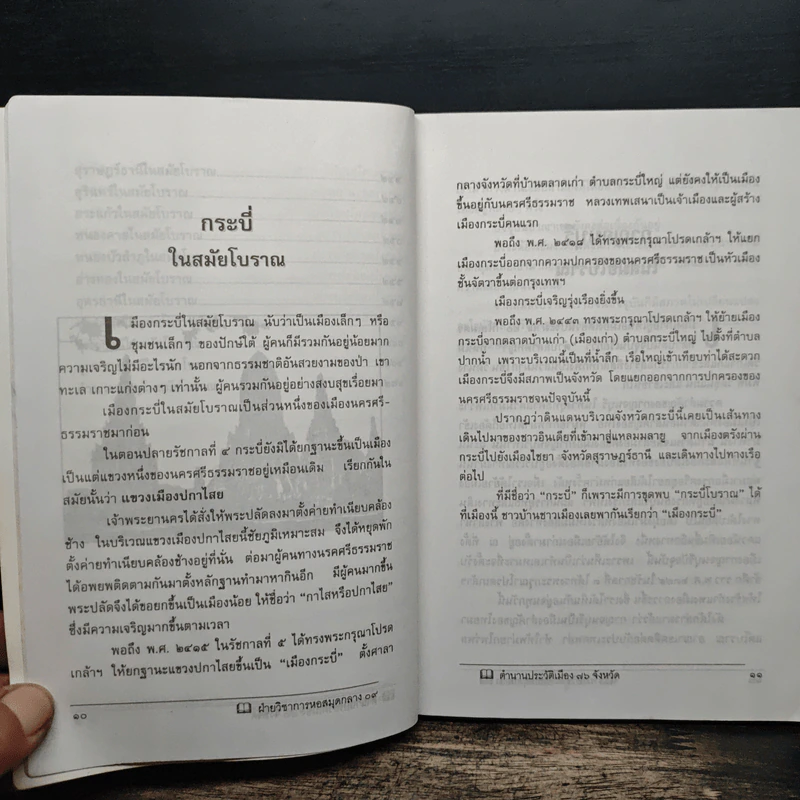 กระบี่
ในสมัยโบราณ
เมืองกระบี่ในสมัยโบราณ นับว่าเป็นเมืองเล็กๆ หรือ
ชุมชนเล็กๆ ของปักษ์ใต้ ผู้คนก็มีรวมกันอยู่น้อยมาก
ความเจริญไม่มีอะไรนัก นอกจากธรรมชาติอันสวยงามของป่า เขา
ทะเล เกาะแก่งต่างๆ เท่านั้น ผู้คนรวมกันอยู่อย่างสงบสุขเรื่อยมา
เมืองกระบี่ในสมัยโบราณเป็นส่วนหนึ่งของเมืองนครศรี-
ธรรมราชมาก่อน
ในตอนปลายรัชกาลที่ ๔ กระบี่ยังมิได้ยกฐานะขึ้นเป็นเมือง
เป็นแต่แขวงหนึ่งของนครศรีธรรมราชอยู่เหมือนเดิม เรียกกันใน
สมัยนั้นว่า แขวงเมืองปกาไสย
เจ้าพระยานครได้สั่งให้พระปลัดลงมาตั้งค่ายทำเนียบคล้อง
ช้าง ในบริเวณแขวงเมืองปกาไสยนี้ชัยภูมิเหมาะสม จึงได้หยุดพัก
ตั้งค่ายทำเนียบคล้องช้างอยู่ที่นั่น ต่อมาผู้คนทางนรคศรีธรรมราช
ได้อพยพติดตามกันมาตั้งหลักฐานทำมาหากินอีก มีผู้คนมากขึ้น
พระปลัดจึงได้ขอยกขึ้นเป็นเมืองน้อย ให้ชื่อว่า “กาไสหรือปกาไสย”
ซึ่งมีความเจริญมากขึ้นตามเวลา
พอถึง พ.ศ. ๒๔๑๕ ในรัชกาลที่ ๕ ได้ทรงพระกรุณาโปรด
เกล้าฯ ให้ยกฐานะแขวงปกาไสยขึ้นเป็น “เมืองกระบี่” ตั้งศาลา
๑๐
ฝ่ายวิชาการหอสมุดกลาง ๐๙
กลางจังหวัดที่บ้านตลาดเก่า ตำบลกระบี่ใหญ่ แต่ยังคงให้เป็นเมือง
ขึ้นอยู่กับนครศรีธรรมราช หลวงเทพเสนาเป็นเจ้าเมืองและผู้สร้าง
เมืองกระบี่คนแรก
พอถึง พ.ศ. ๒๔๑๘ ได้ทรงพระกรุณาโปรดเกล้าฯ ให้แยก
เมืองกระบี่ออกจากความปกครองของนครศรีธรรมราชเป็นหัวเมือง
ชั้นจัตวาขึ้นต่อกรุงเทพฯ
เมืองกระบี่เจริญรุ่งเรืองยิ่งขึ้น
พอถึง พ.ศ. ๒๔๔๓ ทรงพระกรุณาโปรดเกล้าฯ ให้ย้ายเมือง
กระบี่จากตลาดบ้านเก่า (เมืองเก่า) ตำบลกระบี่ใหญ่ ไปตั้งที่ตำบล
ปากน้ำ เพราะบริเวณนี้เป็นที่น้ำลึก เรือใหญ่เข้าเทียบท่าได้สะดวก
เมืองกระบี่จึงมีสภาพเป็นจังหวัด โดยแยกออกจากการปกครองของ
นครศรีธรรมราชจนปัจจุบันนี้
ปรากฏว่าดินแดนบริเวณจังหวัดกระบี่นี้เคยเป็นเส้นทาง
เดินไปมาของชาวอินเดียที่เข้ามาสู่แหลมมลายู จากเมืองตรังผ่าน
กระบี่ไปยังเมืองไชยา จังหวัดสุราษฎร์ธานี และเดินทางไปทางเรือ
ต่อไป
ที่มีชื่อว่า “กระบี่” ก็เพราะมีการขุดพบ “กระบี่โบราณ” ได้
ที่เมืองนี้ ชาวบ้านชาวเมืองเลยพากันเรียกว่า “เมืองกระบี่”
ตำนานประวัติเมือง ๗๖ จังหวัด
๑๑